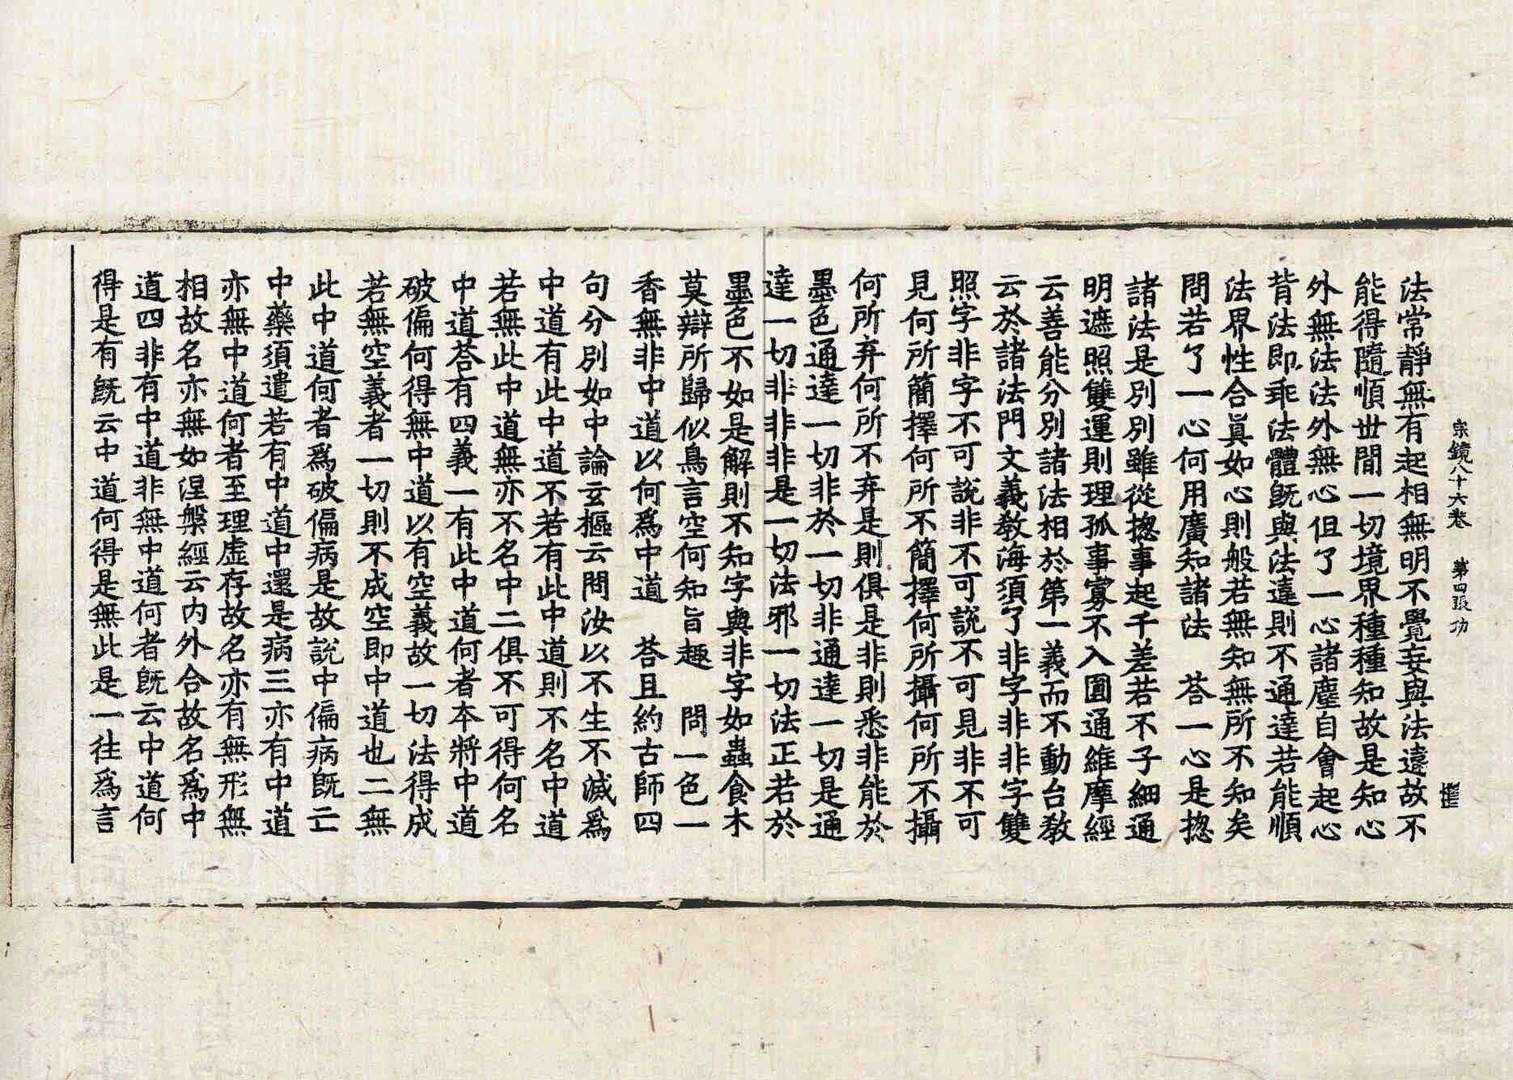 宗鏡八十六卷　第四張　功
法常靜無有起相無明不覺妄與法違故不
能得隨順世間一切境界種種知故是知心
外無法法外無心但了一心諸塵自會起心
背法即乖法體旣與法違則不通達若能順
法界性合眞如心則般若無知無所不知矣
問若了一心何用廣知諸法　荅一心是揔
諸法是別別雖從揔事起千差若不子細通
明遮照雙運則理孤事寡不入圓通維摩經
云善能分別諸法相於第一義而不動台教
云於諸法門文義教海須了非字非非字雙
照字非字不可說非不可說不可見非不可
見何所簡擇何所不簡擇何所攝何所不攝
何所弃何所不弃是則俱是非則悉非能於
墨色通達一切非於一切非通達一切是通
達一切非非非是一切法邪一切法正若於
墨色不如是解則不知字與非字如蟲食木
莫辯所歸似鳥言空何知旨趣　問一色一
香無非中道以何爲中道　荅且約古師四
句分別如中論玄樞云問汝以不生不滅爲
中道有此中道不若有此中道則不名中道
若無此中道無亦不名中二俱不可得何名
中道荅有四義一有此中道何者本將中道
破偏何得無中道以有空義故一切法得成
若無空義者一切則不成空即中道也二無
此中道何者爲破偏病是故說中偏病旣亡
中藥須遣若有中道中還是病三亦有中道
亦無中道何者至理虛存故名亦有無形無
相故名亦無如涅槃經云內外合故名爲中
道四非有中道非無中道何者旣云中道何
得是有旣云中道何得是無此是一往爲言